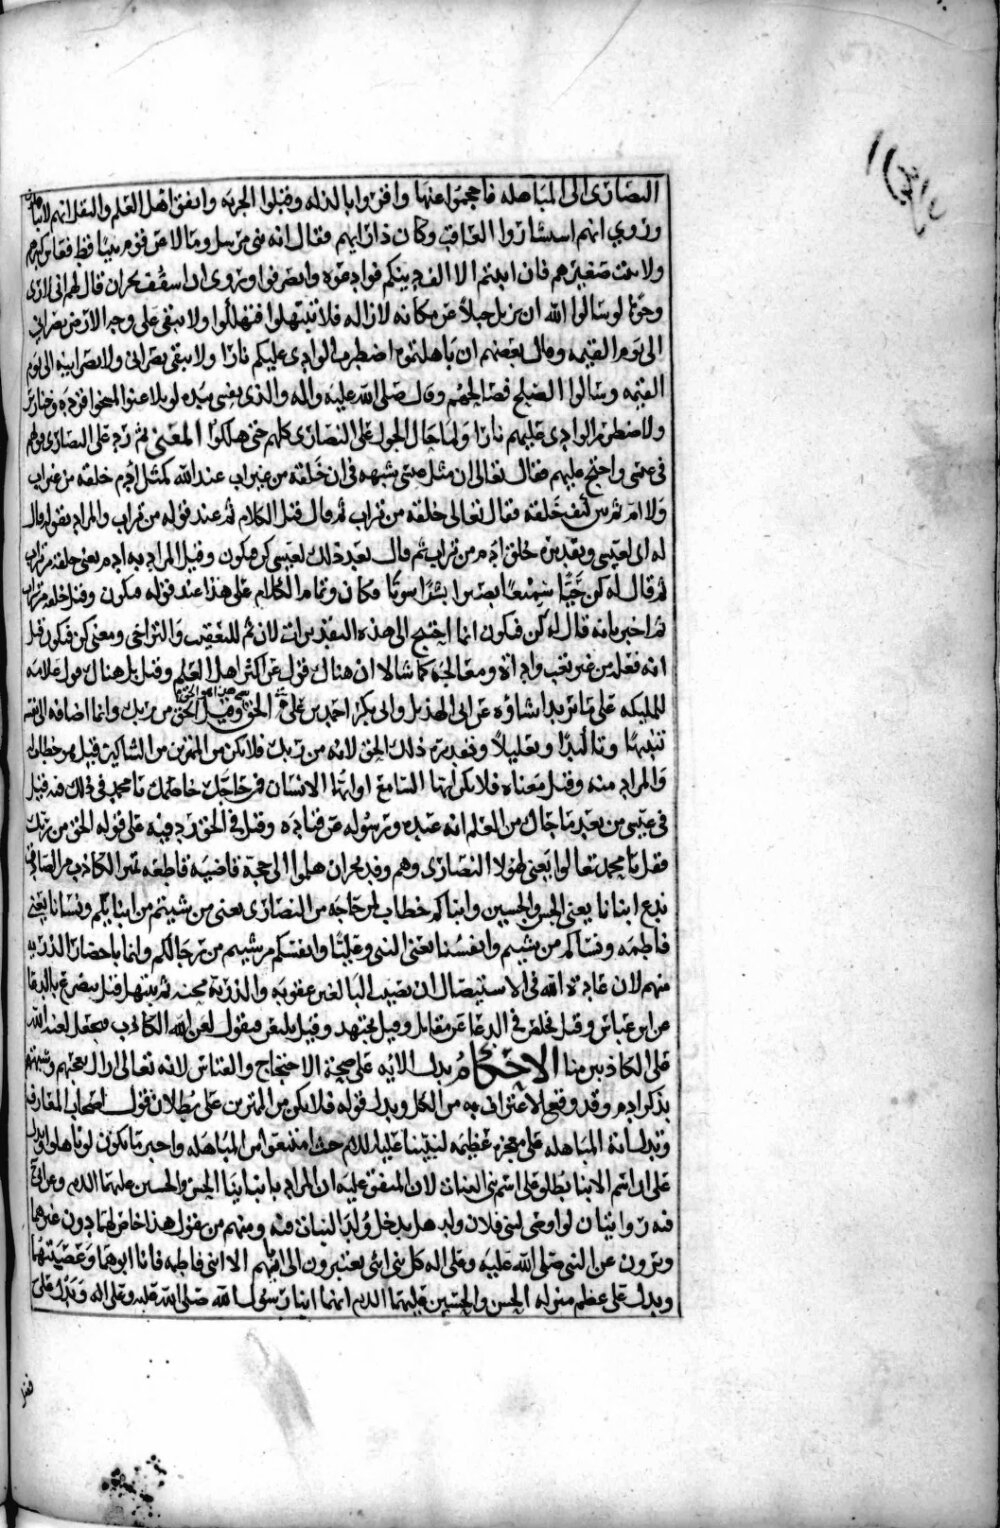 النصارى الى المباهله فاحجموا عنها واقروا بالذله وقبلوا الجزيه واتفق اهل العلم والنقل انهم لم يباهلوا
وروي انهم استشاروا العاقب وكان ذا رايهم فقال انه نبي مرسل وما لاعن قوم نبيا قط فعاش كبيرهم
ولا نبت صغيرهم فان ابيتم الا الف دينكم فوادعوه وانصرفوا وروى ان اسقف نجران قال لهم اني لارى
وجوها لو سالوا الله ان يزيل جبلا عن مكانه لازاله فلا تبتهلوا فتهلكوا ولا يبقى على وجه الارض نصراني
الى يوم القيمه وقال بعضهم ان باهلتموه اضطرم الوادي عليكم نارا ولا يبقى نصراني ولا نصرانيه الى يوم
القيمه وسالوا الصلح فصالحهم وقال صلى الله عليه واله والذي نفسي بيده لو تلاعنوا لمسخوا قرده وخنازير
ولاضطرم الوادي عليهم نارا ولما حال الحول على النصارى كلهم حتى هلكوا المعنى ثم رد على النصارى قولهم
في عيسى واحتج عليهم فقال تعالى ان مثل عيسى شبهه في ان خلقه من غير اب عند الله كمثل ادم خلقه من غير اب
ولا ام ثم خلقه فقال تعالى خلقه من تراب ثم قال قيل الكلام ثم عند قوله من تراب والمراد بقوله قال
له اي لعيسى وتقديره خلق ادم من تراب ثم قال بعد ذلك لعيسى كن فيكون وقيل المراد به ادم يعني خلقه من تراب
ثم قال له كن حيا سميعا بصيرا بشرا سويا فكان وتمام الكلام على هذا عند قوله فيكون وقيل خلقه من تراب
ثم اخبر بانه قال له كن فيكون انما احتيج الى هذه التقديرات لان ثم للتعقيب والتراخي ومعنى كن فيكون قيل
انه فعله من غير تعب واداة ومعالجه كما شاء لا ان هناك قول عن اكثر اهل العلم وقيل بل هناك قول علامه
للمليكه على ما يريد انشاؤه عن ابي الهذيل وابي بكر احمد بن علي الحق وقيل الحق من ربك وانما اضافه الى
تنبيها وتاكيدا وتعليلا وتقديره ذلك الحق لانه من ربك فلا تكن من الممترين من الشاكين قيل هو خطاب له
والمراد منه وقيل معناه فلا تكن ايها السامع او ايها الانسان فمن حاجك خاصمك يا محمد في ذلك فيه قيل
في عيسى من بعد ما جاك من العلم انه عبده ورسوله عن قتاده وقيل في الحق رد فيه على قوله الحق من ربك
فقل يا محمد تعالوا يعني لهولا النصارى وهم وفد نجران هلموا الى حجة قاضيه قاطعه تميز الكاذب من الصادق
ندع ابنانا يعني الحسن والحسين وابناكم خطاب لمن حاجه من النصارى يعني من شيتم من ابنايكم ونسانا يعني
فاطمه ونساكم من شيتم وانفسنا يعني النبي وعليا وانفسكم من شيتم من رجالكم وانما باحضار الذريه
منهم لان عادة الله في الاستيصال ان يصيب البالغين عقوبه والذرية محنه ثم نبتهل قيل نتضرع بالدعا
عن ابن عباس وقيل نخلص في الدعا عن مقاتل وقيل نجتهد وقيل نلتعن فنقول لعن الله الكاذب فنجعل لعنه الله
على الكاذبين منا الاحكام يدل الايه على صحة الاحتجاج والقياس لانه تعالى ازال تعجبهم وشبهتهم
بذكر ادم وقد وقع الاعتراف به من الكل ويدل قوله فلا تكن من الممترين على بطلان قول اصحاب المعارف
وتدل اية المباهله على معجزه عظيمه لنبينا عليه السلم حيث امتنعوا من المباهله واخبر بما يكون لو باهلوا ويدل
على ان اسم الابنا يطلق على اسم بني البنات لان المتفق عليه ان المراد بابنائنا الحسن والحسين عليهما السلم وعن
فيه روايتان لو اوصى لبني فلان ولد هل يدخل ولد البنات فيه ومنهم من يقول هذا خاص لهما دون غيرهما
ويروون عن النبي صلى الله عليه وعلى اله كل بني انثى يعتبرون الى ابيهم الا ابني فاطمه فانا ابوهما وعصبتهما
ويدل على عظم منزله الحسن والحسين عليهما السلم انهما ابنا رسول الله صلى الله عليه وعلى اله ويدل على